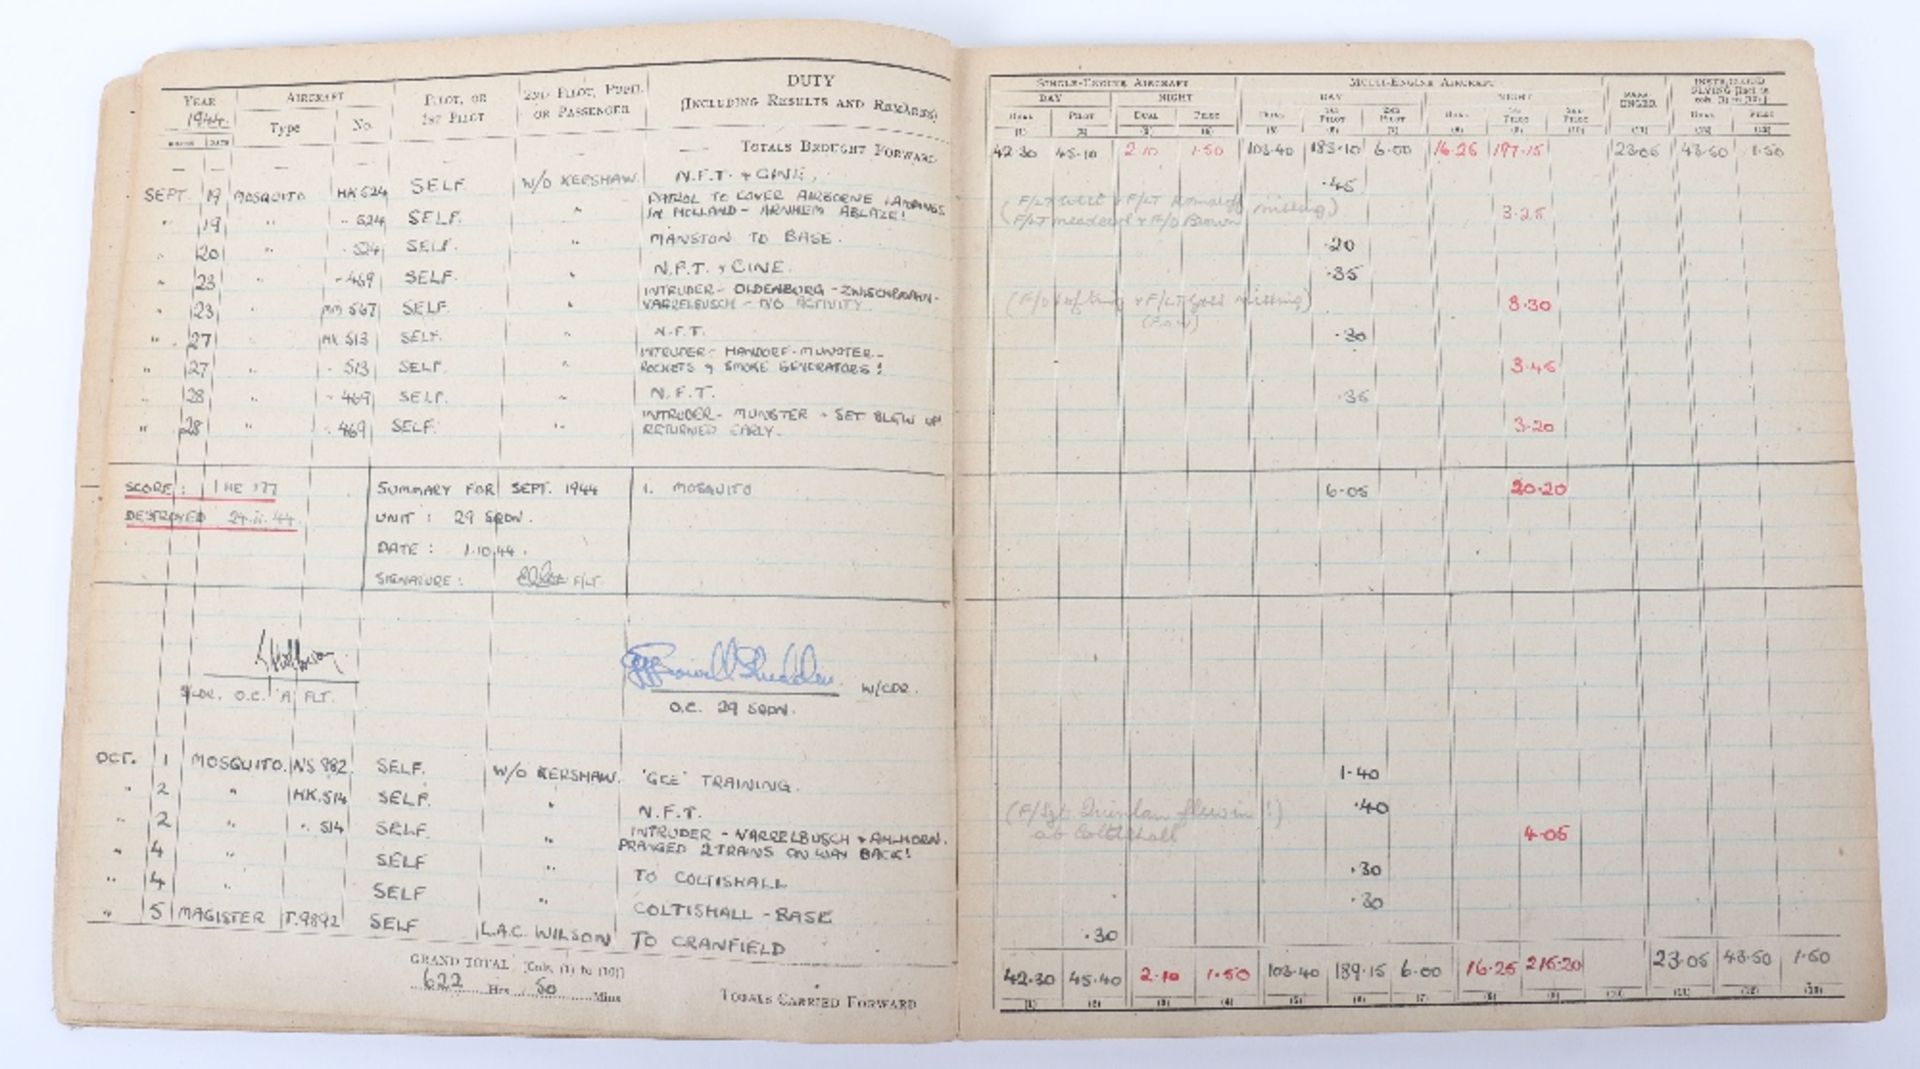 YEAR AIRCRAFT PILOT, OR 1ST PILOT 2ND PILOT, PUPIL OR PASSENGER DUTY (INCLUDING RESULTS AND REMARKS)
1944. Type No.
MONTH DATE
— — — — — — TOTALS BROUGHT FORWARD
SEPT. 19 MOSQUITO HK 524 SELF. W/O KERSHAW. N.F.T. & CINE.
" 19 " " 524 SELF. " PATROL TO COVER AIRBORNE LANDINGS
IN HOLLAND - ARNHEM ABLAZE!
" 20 " " 524 SELF. " MANSTON TO BASE.
" 23 " " 469 SELF. " N.F.T. & CINE.
" 23 " MM 567 SELF. " INTRUDER - OLDENBURG - ZWISCHENAHN -
VARRELBUSCH - NO ACTIVITY.
" 27 " HK 513 SELF. " N.F.T.
" 27 " " 513 SELF. " INTRUDER - HANDORF - MUNSTER -
ROCKETS & SMOKE GENERATORS!
" 28 " " 469 SELF. " N.F.T.
" 28 " " 469 SELF. " INTRUDER - MUNSTER - SET BLEW UP
RETURNED EARLY.
SCORE: 1 HE 177 SUMMARY FOR SEPT. 1944 1. MOSQUITO
DESTROYED 24.II.44. UNIT: 29 SQDN.
DATE: 1.10.44.
SIGNATURE: F/LT.
S/LDR. O.C. 'A' FLT. W/CDR.
O.C. 29 SQDN.
OCT. 1 MOSQUITO. NS 882. SELF. W/O KERSHAW. 'GEE' TRAINING.
" 2 " HK.514 SELF. " N.F.T.
" 2 " " 514 SELF. " INTRUDER - VARRELBUSCH & AHLHORN.
PRANGED 2 TRAINS ON WAY BACK!
" 4 " SELF " TO COLTISHALL
" 4 " SELF " COLTISHALL - BASE
" 5 MAGISTER T.9892 SELF L.A.C. WILSON TO CRANFIELD
GRAND TOTAL [Cols. (1) to (10)]
622 Hrs. 50 Mins.
TOTALS CARRIED FORWARD
SINGLE-ENGINE AIRCRAFT MULTI-ENGINE AIRCRAFT PASS-ENGER INSTRUMENT FLYING [Incl. in cols. (1) to (10)]
DAY NIGHT DAY NIGHT
DUAL PILOT DUAL PILOT DUAL 1ST PILOT 2ND PILOT DUAL 1ST PILOT 2ND PILOT DUAL PILOT
(1) (2) (3) (4) (5) (6) (7) (8) (9) (10) (11) (12) (13)
42.30 45.10 2.10 1.50 103.40 183.10 6.00 16.25 197.15 23.05 43.50 1.50
.45
F/LT & F/LT missing)
F/LT & F/O Brown
3.25
.20
.35
(F/O & F/LT missing)
(P.O.W)
3.30
.30
3.45
.35
3.20
6.05 20.20
1.40
(F/Sgt. Quinlan flew in!) .40
at Coltishall 4.05
.30
.30
.30
42.30 45.40 2.10 1.50 103.40 189.15 6.00 16.25 215.20 23.05 43.50 1.50
(1) (2) (3) (4) (5) (6) (7) (8) (9) (10) (11) (12) (13)